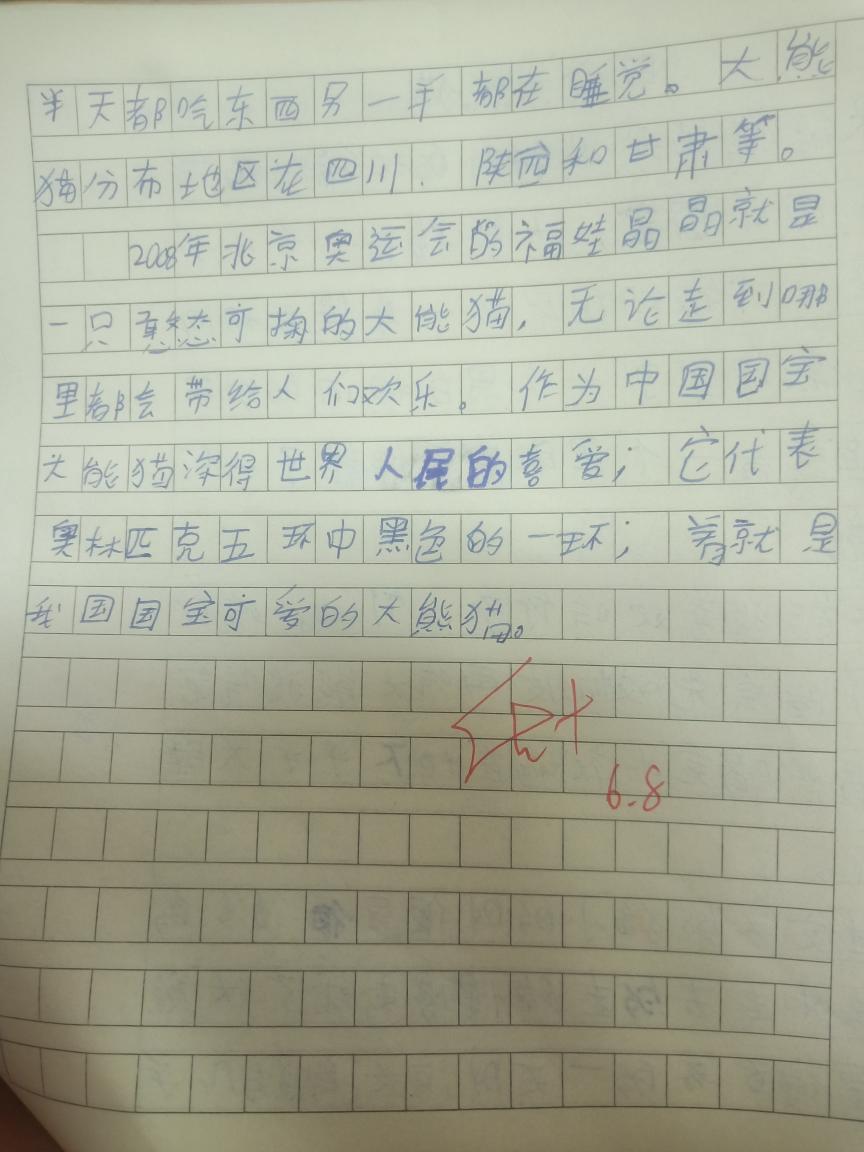 半天都吃东西另一半都在睡觉。大熊
猫分布地区在四川.陕西和甘肃等。
2008年北京奥运会的福娃晶晶就是
一只憨态可掬的大熊猫,无论走到哪
里都会带给人们欢乐。作为中国国宝
大熊猫深得世界人民的喜爱;它代表
奥林匹克五环中黑色的一环;着就是
我国国宝可爱的大熊猫。
6.8